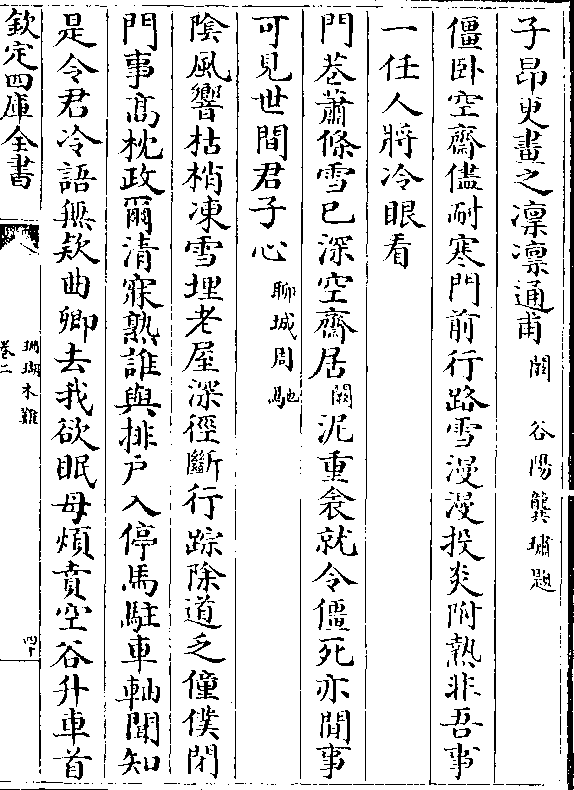 子昂史畫之凛凛通甫 闕 谷陽龔璛題
僵卧空齋儘耐寒門前行路雪漫漫投炎附熱非吾事
一任人將冷眼看
門巷蕭條雪已深空齋居闕泥重衾就令僵死亦閒事
可見世間君子心 聊城周馳
陰風響枯梢凍雪埋老屋深徑斷行踪除道乏僮僕閉
門事髙枕政爾清寐熟誰與排戸入停馬駐車軸聞知
是令君冷語無欵曲卿去我欲眠母煩賁空谷升車首
欽定四庫全書
珊瑚木難
卷二
四十